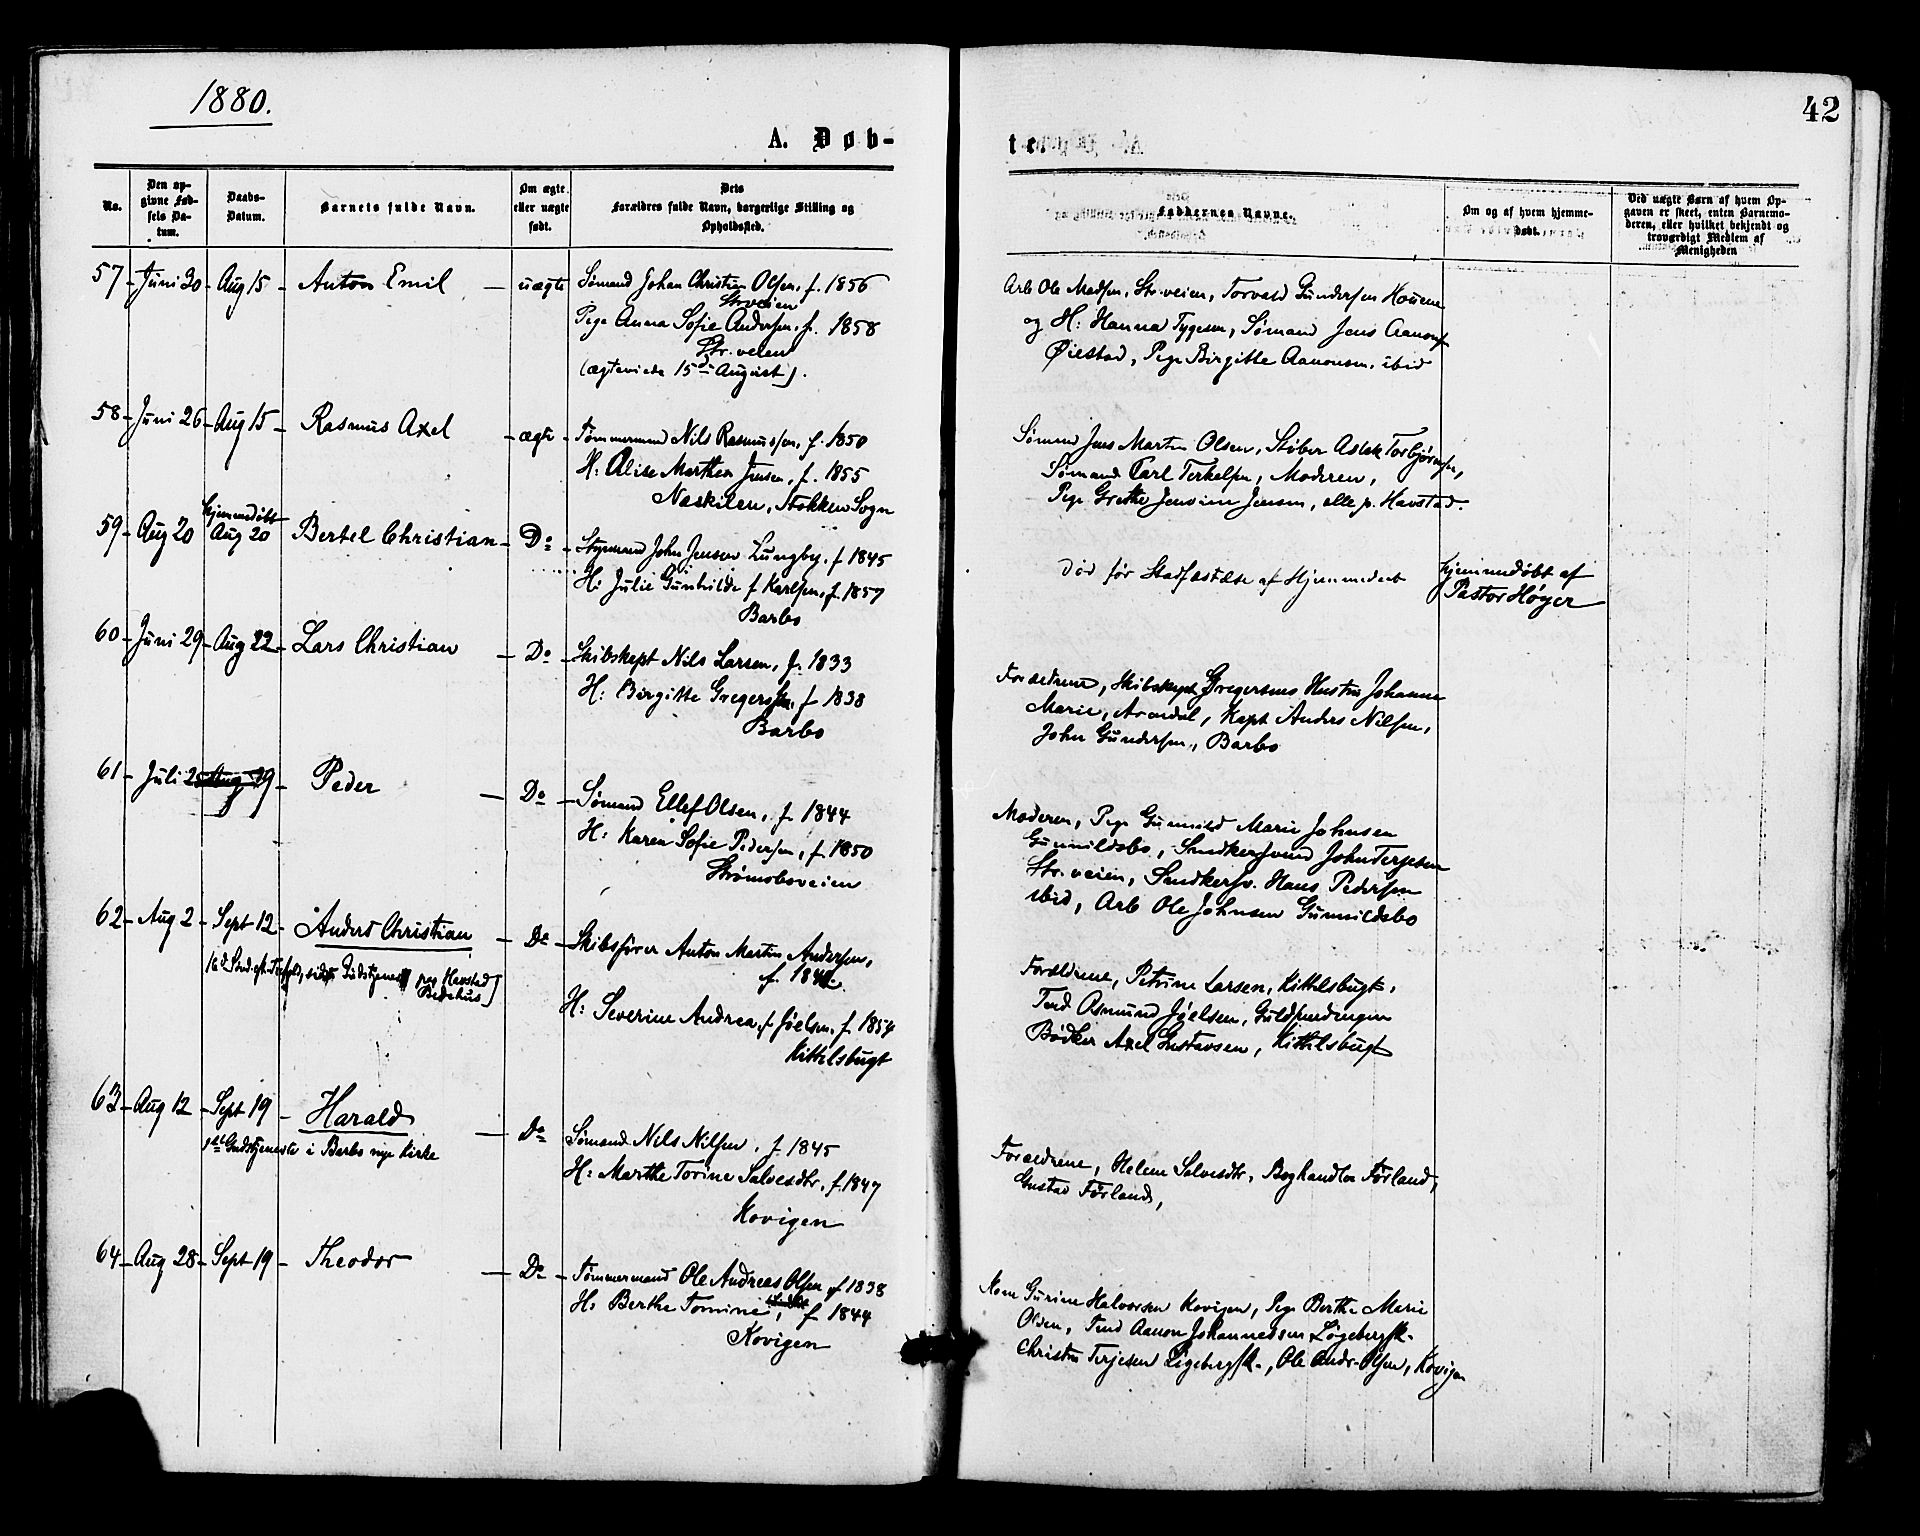 1880.
42
A. Døb-
te
No.
Den op-
givne Fød-
sels Da-
tum.
Daabs-
Datum.
Barnets fulde Navn.
Om ægte
eller uægte
født.
Dets
Forældres fulde Navn, borgerlige Stilling og
Opholdssted.
Faddernes Navne.
Om og af hvem hjemme-
døbt.
Ved uægte Børn af hvem Op-
gaven er skeet, enten Barnemo-
deren, eller hvilket bekjendt og
troværdigt Medlem af
Menigheden
57 Juni 30 Aug 15 Anton Emil uægte Sømand Johan Christian Olsen, f. 1856
Str.veien
Pige Anna Sofie Andersen, f. 1858
Str.veien
(ægteviede 15d August).
Arb Ole Madsen, Str.veien, Torvald Gundersen
og H: Hanna Tygesen, Sømand Jens Aanonsen
Øiestad, Pige Birgitte Aanonsen, ibid
58 Juni 26 Aug 15 Rasmus Axel ægte Tømmermand Nils Rasmussen, f. 1850
H: Alise Marthea Jensen, f. 1855
Neskilen, Stokken Sogn
Sømand Jens Martin Olsen, Støber Aslak Torbjørnsen,
Sømand Carl Terkelsen, Moderen,
Pige Grethe Jensine Jensen, alle p. Havstad.
59 Aug 20 hjemmedøbt
Aug 20 Bertel Christian Do Styrmand John Jensen Lungby, f 1845
H: Julie Gunhilde f Karlsen, f. 1857
Barbo
Død før Stadfæstelse af Hjemmedaab
hjemmedøbt af
Pastor Høyer
60 Juni 29 Aug 22 Lars Christian Do Skibskapt Nils Larsen, f. 1833
H: Birgitte Gregersen, f 1838
Barbo
Forældrene, Skibskapt Gregersens Hustru Johanne
Marie, Arendal, Kapt Anders Nilsen,
John Gundersen, Barbo
61 Juli 25 Aug 29 Peder Do Sømand Ellef Olsen, f. 1844
H: Karen Sofie Pedersen, f. 1850
Strømsboveien
Moderen, Pige Gunnild Marie Johnsen
Gunnildsbo, Snedkersvend John Terjesen
Str.veien, Snedkersv. Hans Pedersen
ibid, Arb Ole Johnsen Gunnildsbo
62 Aug 2 Sept 12 Anders Christian Do Skibsfører Anton Martin Andersen,
f. 184
16d Snd. eft. Trefold., sidste Gudstjeneste paa Havstad
Bedehus]
H: Severine Andrea, f. Jøelsen, f. 1854
Kittelsbugt
Forældrene, Petrine Larsen, Kittelsbugt,
Tmd Asmund Jøelsen, Guldsmedengen
Bødker Axel Gustavsen, Kittelsbugt
63 Aug 12 Sept 19 Harald Do Sømand Nils Nilsen, f. 1845
1ste Gudstjeneste i Barbo nye Kirke
H: Marthe Torine Salvesdtr, f. 1847
Kovigen
Forældrene, Helene Salvesdtr, Boghandler Førland,
Gustav Førland,
64 Aug 28 Sept 19 Theodor Do Tømmermand Ole Andreas Olsen f 1838
H: Berthe Tomine, f 1844
Kovigen
Kone Gurine Halvorsen Kovigen, Pige Berthe Marie
Olsen, Tmd Aanon Johannessen Løgebergsk.
Christen Terjesen Løgebergsk., Ole Andr. Olsen, Kovigen